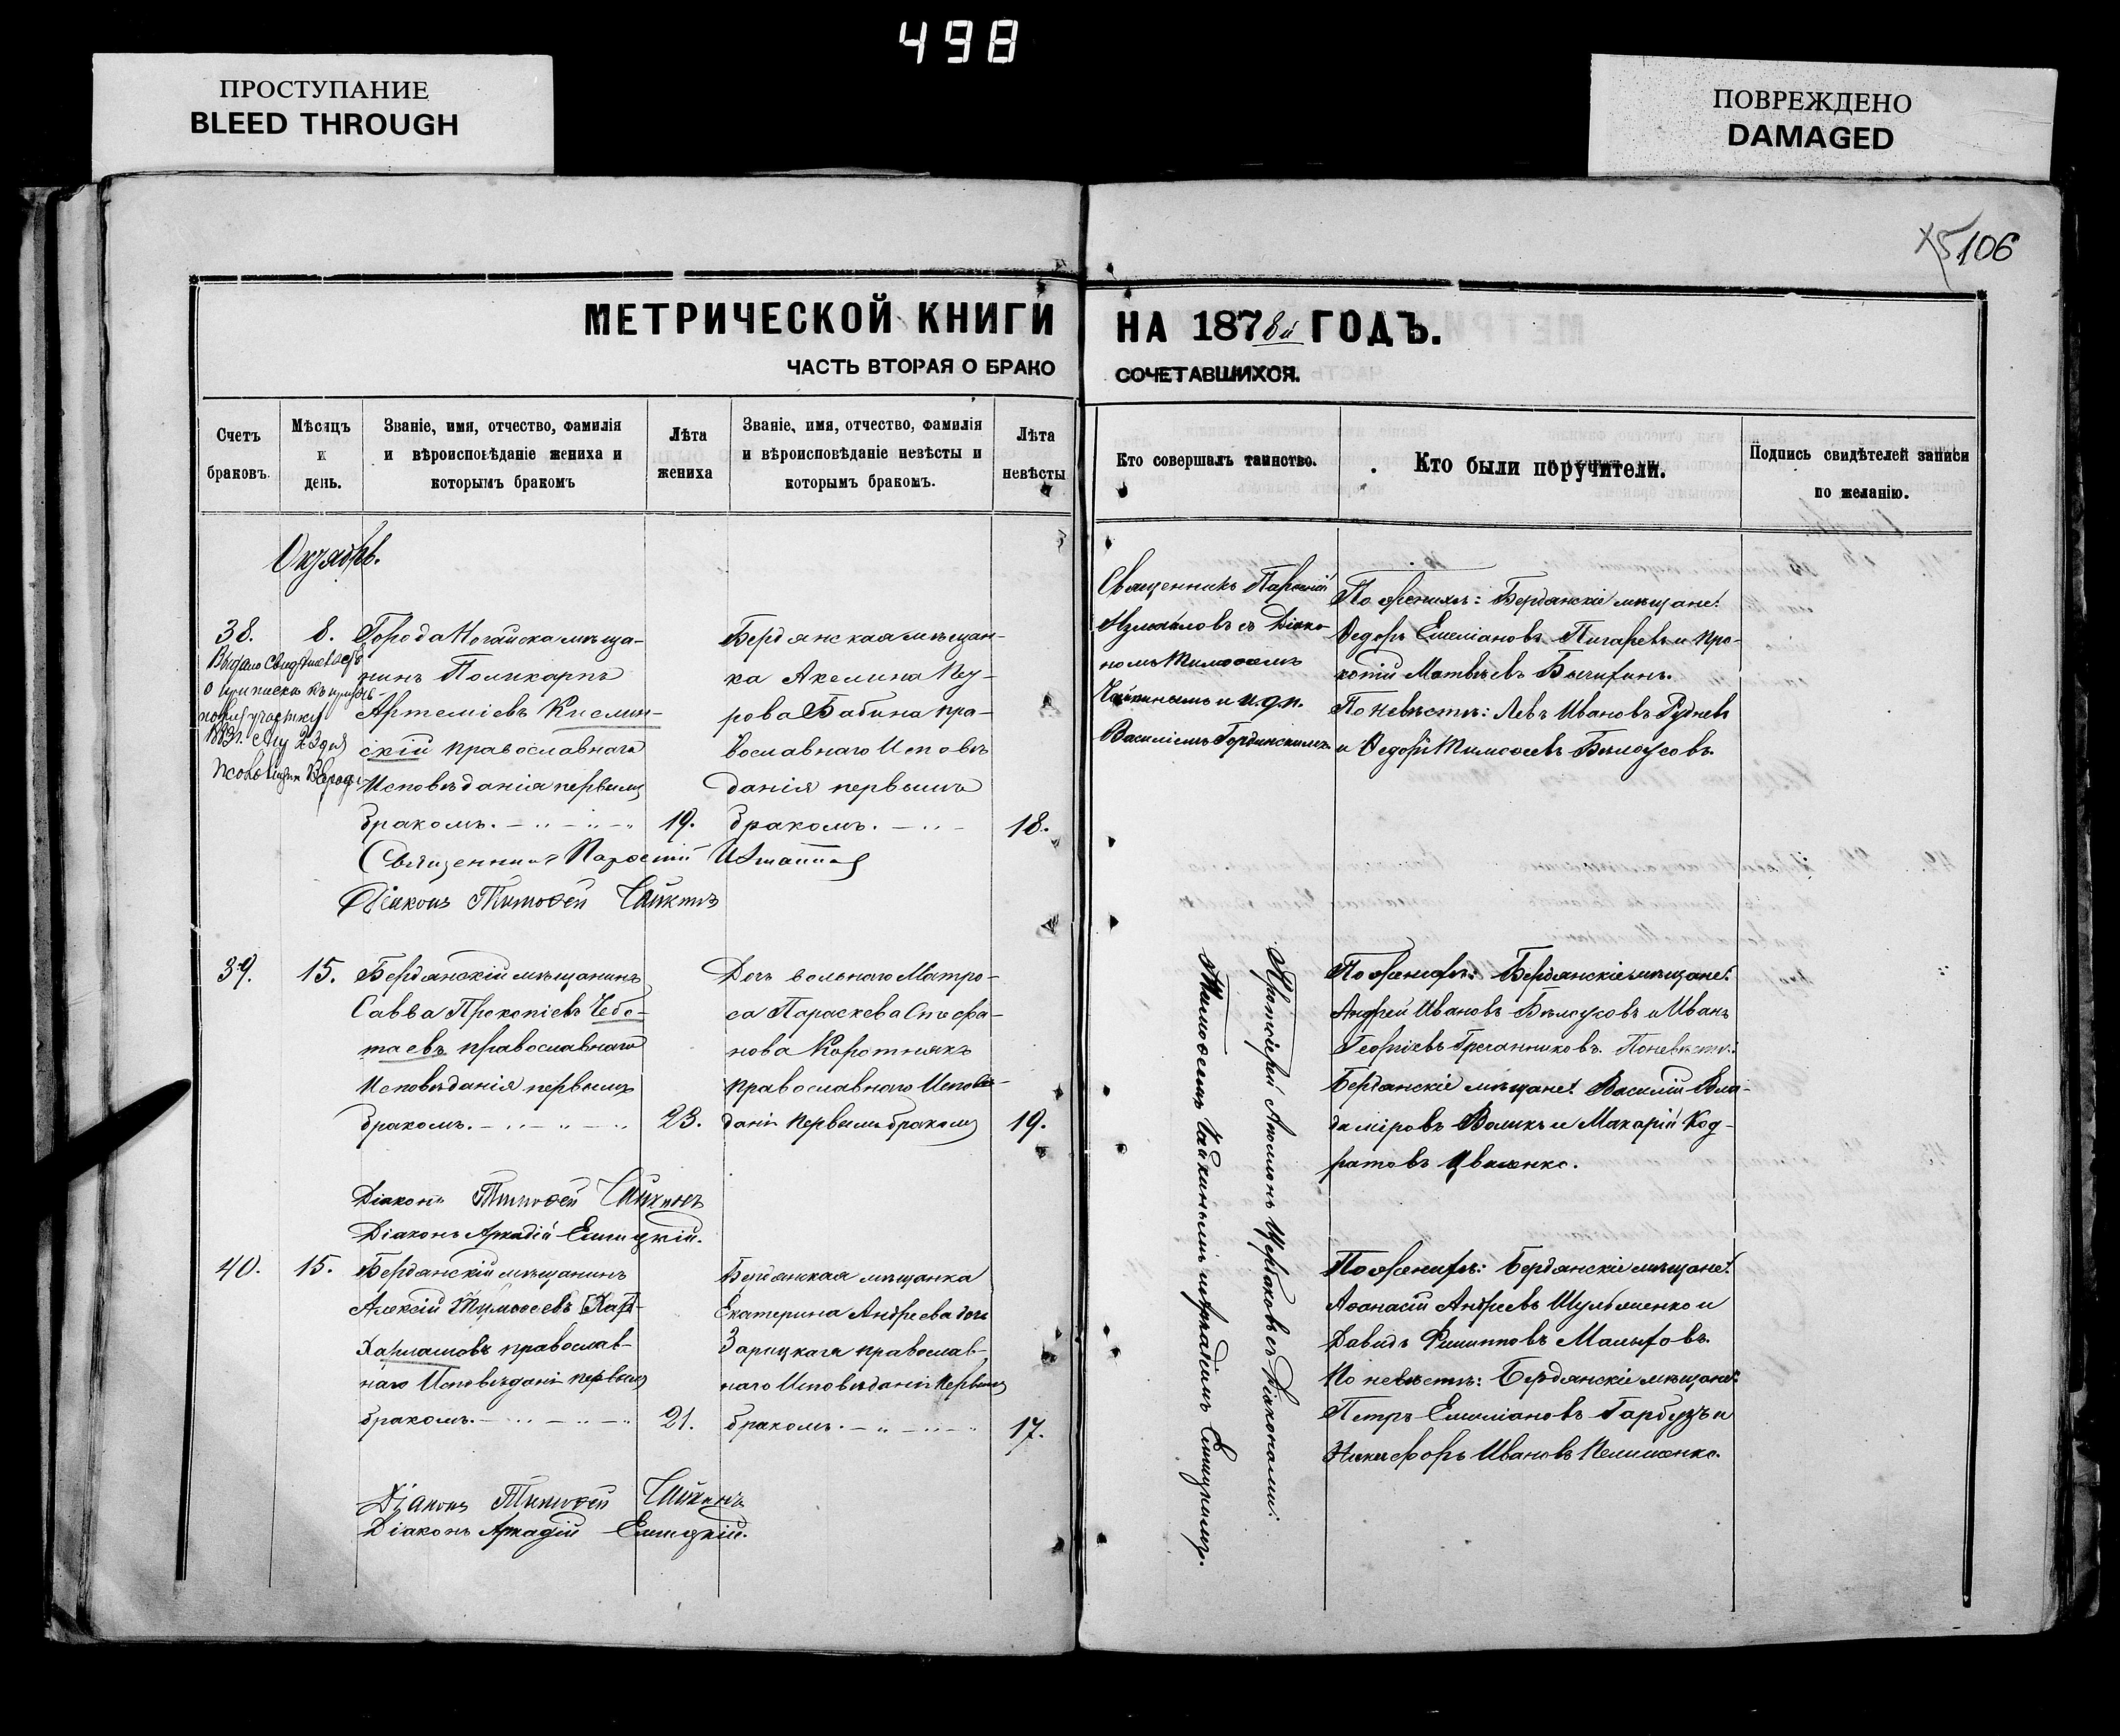 498
ПРОСТУПАНИЕ
BLEED THROUGH
ПОВРЕЖДЕНО
DAMAGED
106
МЕТРИЧЕСКОЙ КНИГИ
НА 1878й ГОДЪ.
ЧАСТЬ ВТОРАЯ О БРАКО
СОЧЕТАВШИХСЯ.
Счетъ
браковъ.
Мѣсяцъ
и
день.
Званіе, имя, отчество, фамилія
и вѣроисповѣданіе жениха и
которымъ бракомъ
Лѣта
жениха
Званіе, имя, отчество, фамилія
и вѣроисповѣданіе невѣсты и
которымъ бракомъ.
Лѣта
невѣсты
Кто совершалъ таинство.
Кто были поручители.
Подпись свидѣтелей записи
по желанію.
Октябрь.
38.
8.
Города Ногайска мѣща-
нинъ Поликарпъ
Артеміевъ Кислин-
скій православнаго
Исповѣданія первымъ
бракомъ.
19.
Бердянская мѣщан-
ка Акелина
рова Бабина пра-
вославнаго Исповѣ
данія первымъ
бракомъ.
18.
Выдано Свидѣтельство
о припискѣ къ призыв-
ному участку
1883г. 23 дня
Священникъ Парѳеній
Измайловъ съ Діако-
номъ Тимоѳеемъ
Чайкинымъ и и.д.п.
Василіемъ
По женихѣ: Бердянскіе мѣщане:
Ѳедоръ Емеліановъ Пигаревъ и Про-
копій Матвѣевъ
По невѣстѣ: Левъ Ивановъ Рудневъ
и Ѳедоръ Тимоѳеевъ Бѣлоусовъ.
Священникъ Парѳеній Измайловъ
Діаконъ Тимоѳей Чайкинъ
39.
15.
Бердянскій мѣщанинъ
Савва Прокопіевъ Чебо-
таевъ православнаго
Исповѣданія первымъ
бракомъ.
23.
Дочь вольнаго Матро-
са Параскева Стефа-
нова Коротнякъ
православнаго Исповѣ-
данія первымъ бракомъ
19.
Протоіерей Аполлонъ Щербаковъ съ Діаконами:
Тимоѳеемъ Чайкинымъ и Аркадіемъ
По женихѣ: Бердянскіе мѣщане:
Андрей Ивановъ Бѣлоусовъ и Иванъ
Георгіевъ Гречанниковъ. По невѣстѣ:
Бердянскіе мѣщане: Василій Вла-
диміровъ Воликъ и Макарій Код-
ратовъ Цвиленко.
Діаконъ Тимоѳей Чайкинъ
Діаконъ Аркадій
40.
15.
Бердянскій мѣщанинъ
Алексій Тимоѳеевъ
Харламовъ православ-
наго Исповѣданія первымъ
бракомъ.
21.
Бердянская мѣщанка
Екатерина Андреева дочь
Зарицкая православ-
наго Исповѣданія первымъ
бракомъ.
17.
По женихѣ: Бердянскіе мѣщане:
Аѳанасій Андреевъ Шульменко и
Давидъ Филипповъ
По невѣстѣ: Бердянскіе мѣщане:
Петръ Емеліановъ Гарбузъ и
Никифоръ Ивановъ
Діаконъ Тимоѳей Чайкинъ
Діаконъ Аркадій